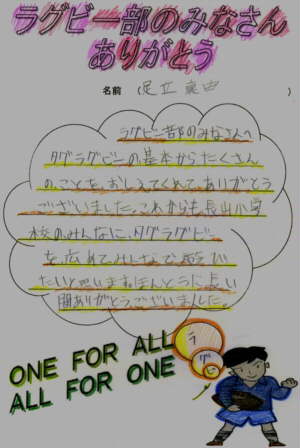 ラグビー部のみなさん
ありがとう
名前 (足立 )
ラグビー部のみなさんへ
タグラグビーの基本からたくさん
のことを、おしえてくれて、ありがとう
ございました。これからも長山小学
校のみんなに、タグラグビー
を、広めてみんなで
たいと思います。ほんとうに長い
間ありがとうございました。
ONE FOR ALL
ALL FOR ONE
ラグビー